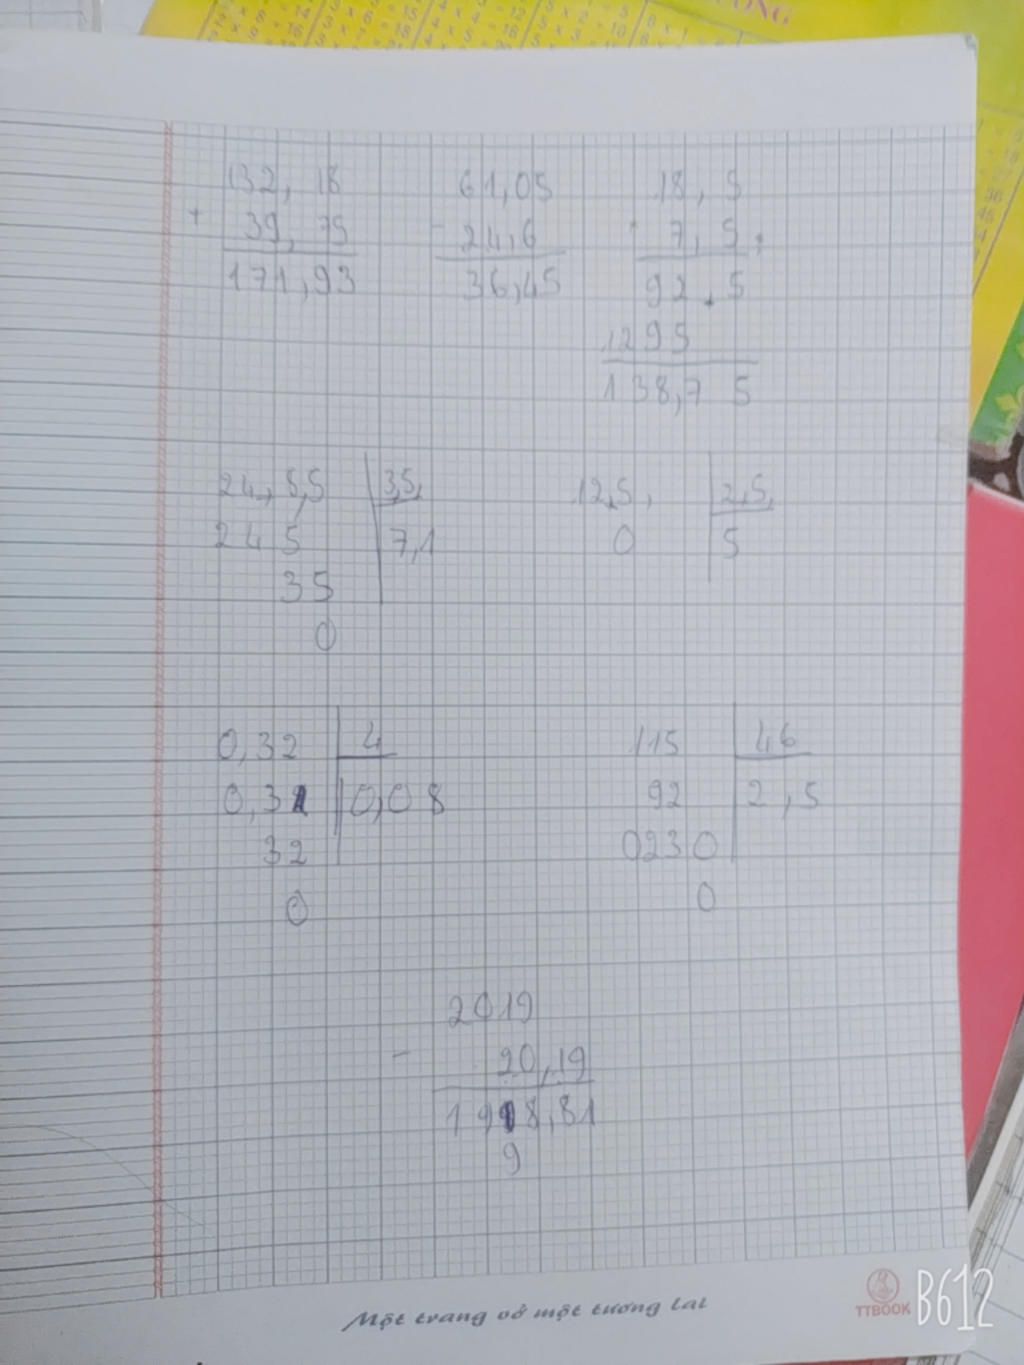 132,18 61,05 18,5
+ 39,75 - 24,6 7,5
171,93 36,45 92,5
1295
138,7 5
24,8,5 3,5, 12,5, 2,5,
245 7,1 0 5
35
0
0,32 4 115 46
0,32 0,08 92 2,5
32 0230
0 0
2019
- 20,19
1998,81
9
Một trang vở một tương lai
TTBOOK
B612